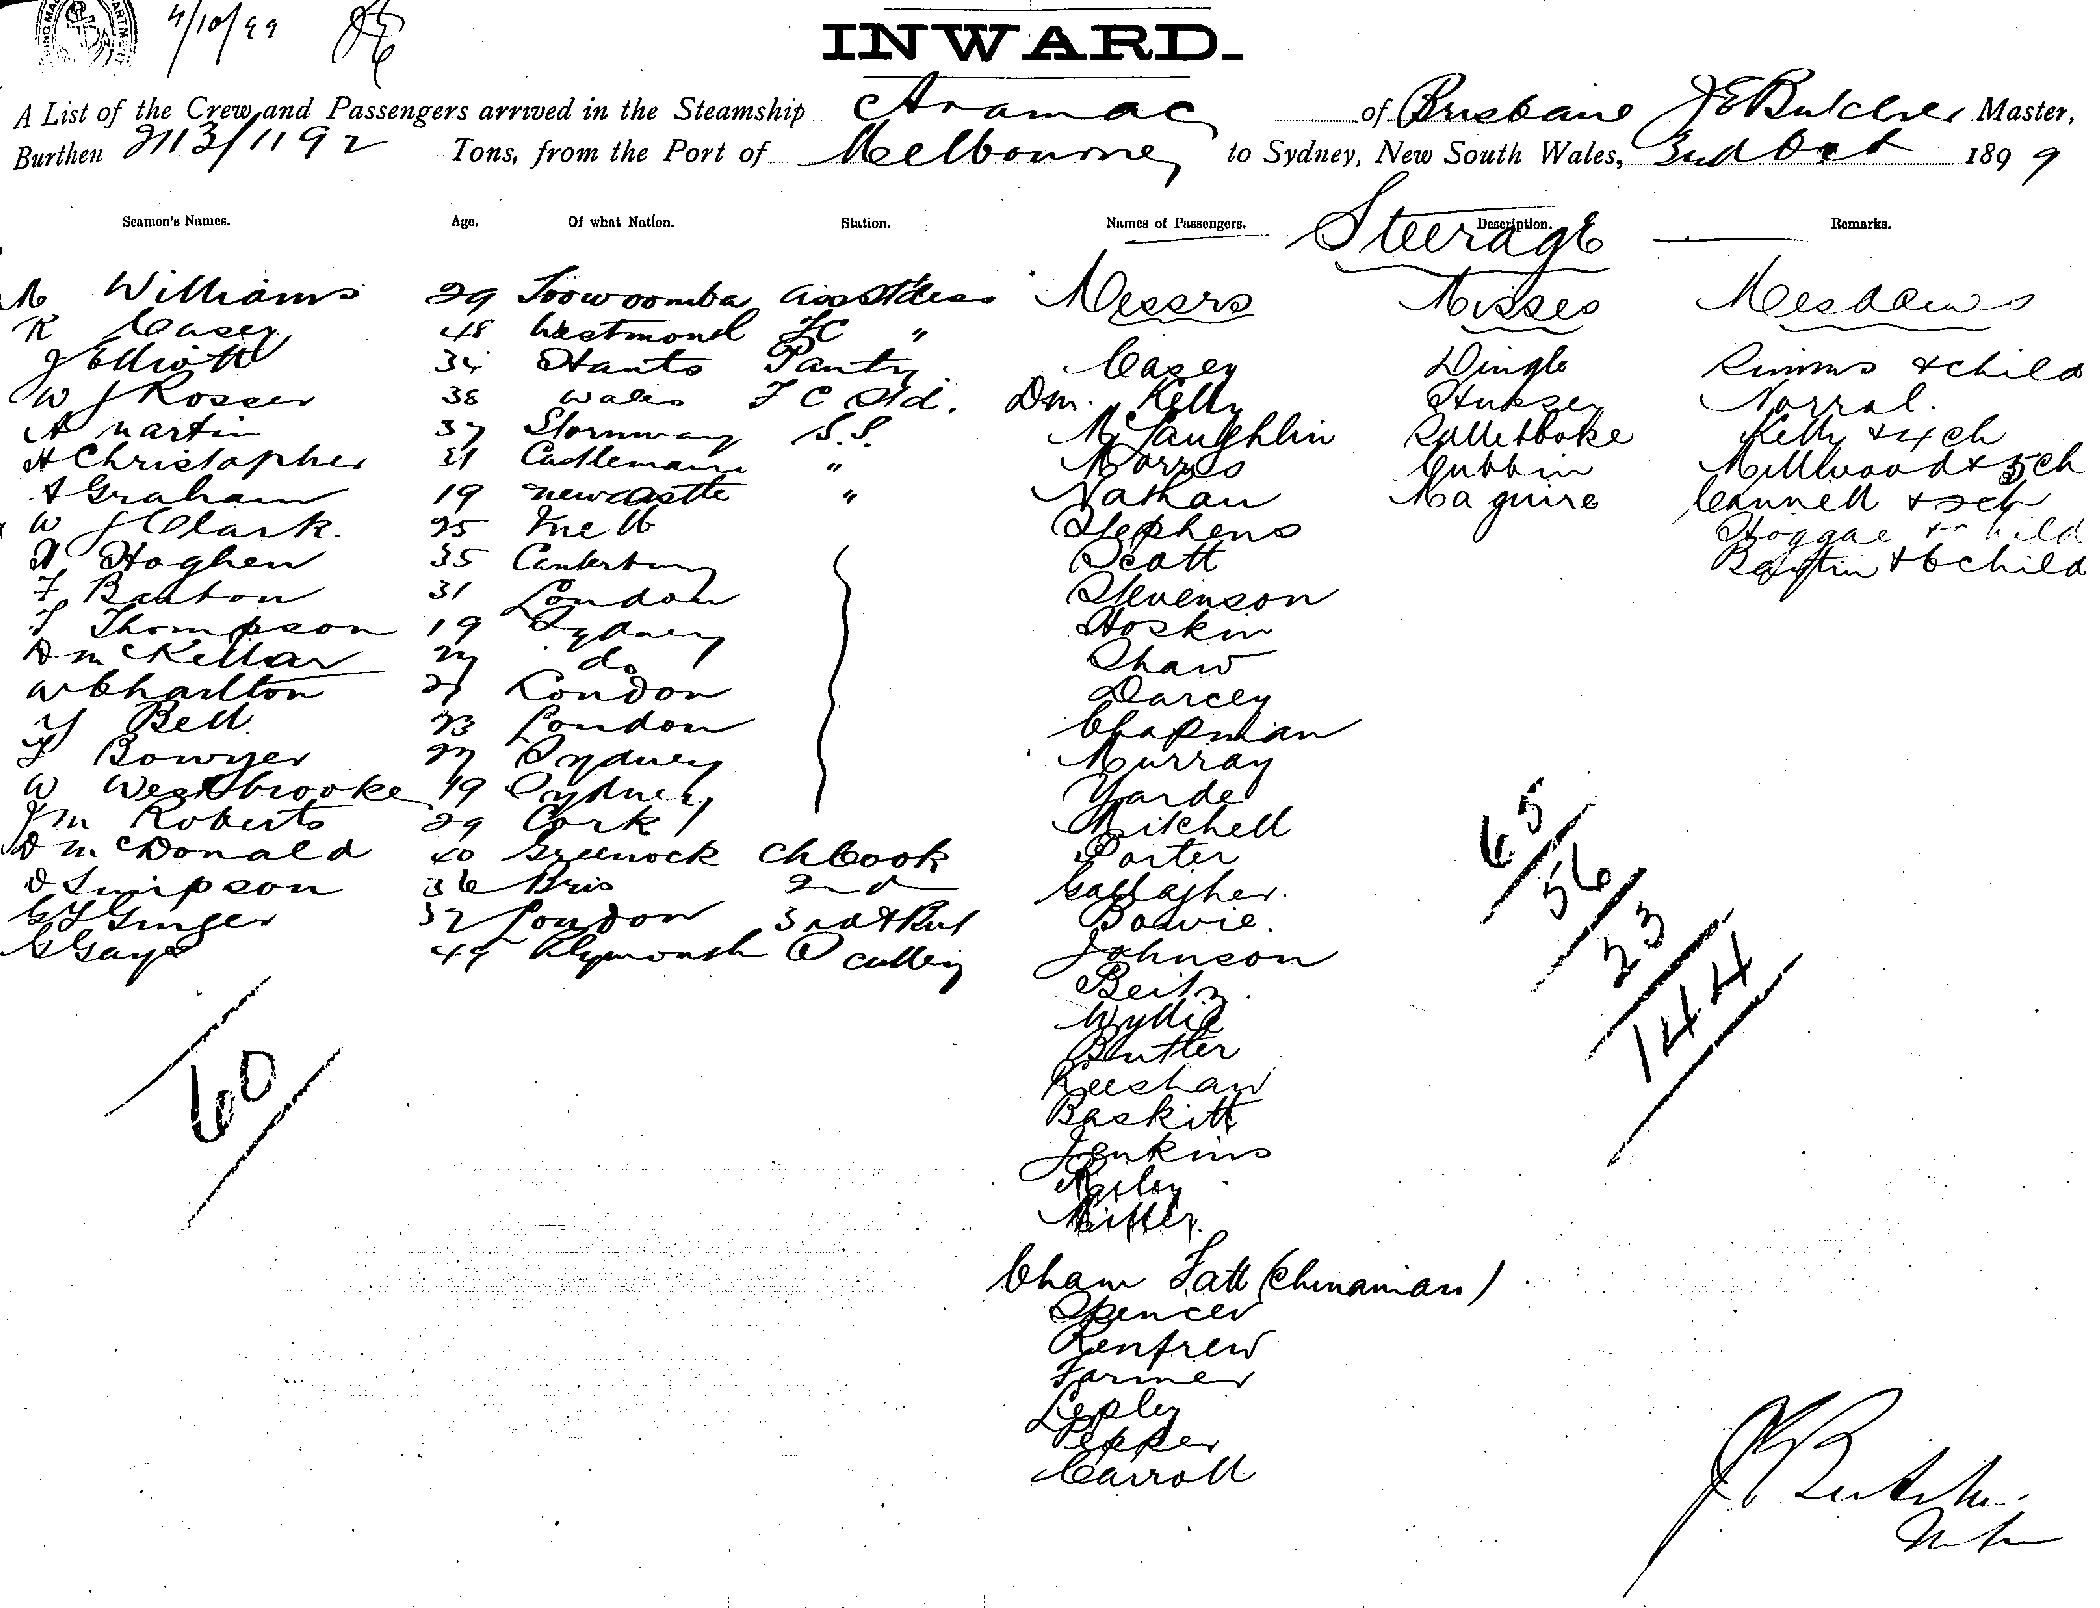 4/10/99
INWARD.
A List of the Crew and Passengers arrived in the Steamship Aramac of Brisbane J E Butcher Master,
Burthen 2113/1192 Tons, from the Port of Melbourne to Sydney, New South Wales, 3rd Oct 1899
Seamen's Names. Age. Of what Nation. Station. Names of Passengers. Description. Remarks.
Steerage
Williams 29 Toowoomba Ass Stdess Messrs Misses Mesdames
R Casey 48 Westmond FC " Casey Dingle Simms + child
J Elliott 34 Hants Pantry Dm. Kelly Norral.
W J Rosser 38 Wales F C Std. McLaughlin Kelly + 4 ch
A Martin 37 Stornway S.S. Morris Gubbin Millwood + 5 ch
H Christopher 31 Castlemaine " Nathan Maguire Cannell + 2 ch
A Graham 19 Newcastle " Stephens
W J Clark. 25 Melb Scott
Hoghen 35 Canterbury Stevenson
F Barton 31 London Hoskin
T Thompson 19 Sydney Shaw
D McKellar 27 do Darcey
W Charlton London Chapman
Bell 23 London Murray
Bowyer 27 Sydney Yarde
W Westbrooke 19 Sydney Mitchell
J M Roberts 29 Cork Porter
D McDonald 40 Greenock Ch Cook Gallagher.
D Simpson 36 Bris 2nd Bowie.
G F Ginger 32 London 3rd + But Johnson
G Gaye 49 Plymouth Beitz.
Wyllie
Butler
Keeshan
Baskitt
Jenkins
Miller.
Cham Fatt (Chinaman)
Spencer
Renfrew
Farmer
Lepley
Pepper
Carroll
60
65
56
23
144
J Butcher